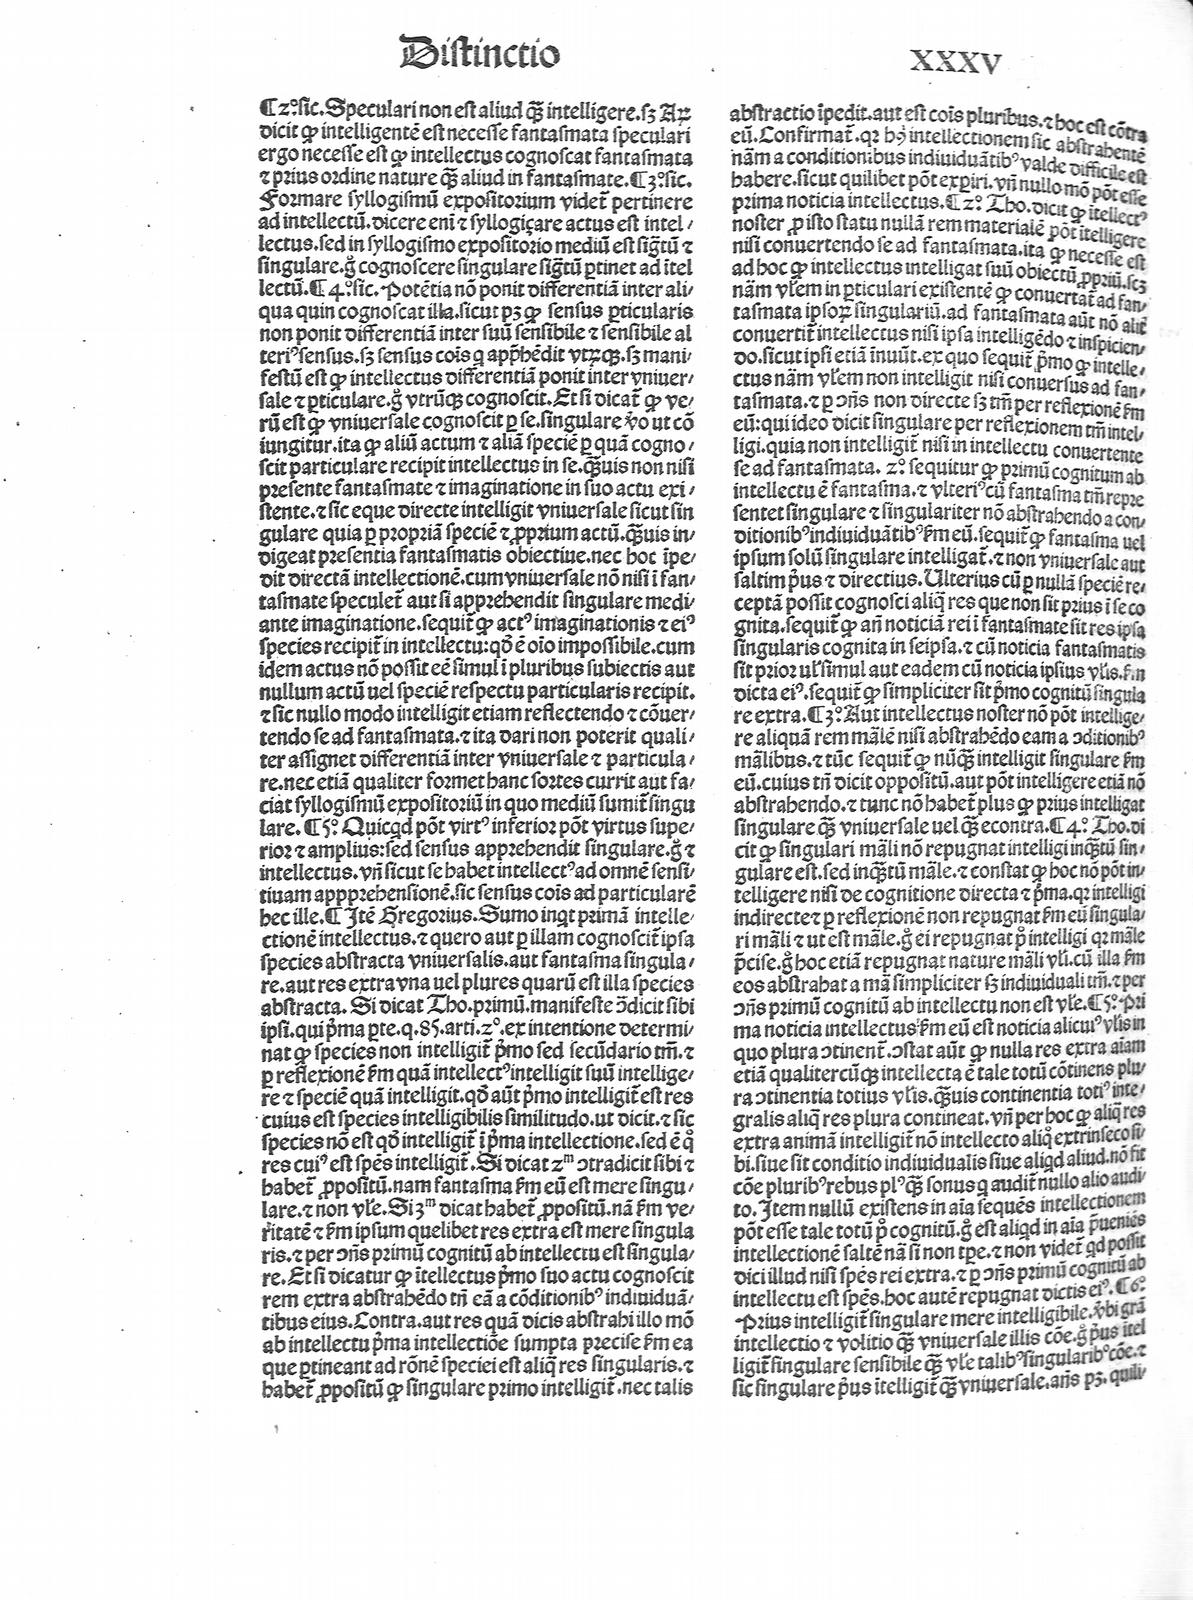 Distinctio
XXXV
¶ 2º.sic.Speculari non est aliud q̃ꝫ intelligere.sꝫ Aꝝ
dicit ꝙ intelligentē est necesse fantasmata speculari
ergo necesse est ꝙ intellectus cognoscat fantasmata
⁊ prius ordine nature q̃ꝫ aliud in fantasmate.¶ 3º.sic.
Formare syllogismū expositorium videt᷑ pertinere
ad intellectū.dicere eni̅ ⁊ syllogiçare actus est intel/
lectus.sed in syllogismo expositorio mediū est sig̃tū ⁊
singulare.g̊ cognoscere singulare sig̃tū ꝑtinet ad ītel
lectū.¶ 4º.sic.Potētia nō ponit differentiā inter ali/
qua quin cognoscat illa.sicut pꝫ ꝙ sensus ꝑticularis
non ponit differentiā inter suū sensibile ⁊ sensibile al
teriꝰ sensus.sꝫ sensus cois q app̃hēdit vtrūqꝫ.sꝫ mani/
festū est ꝙ intellectus differentiā ponit inter vniuer/
sale ⁊ ꝑticulare.g̊ vtrūqꝫ cognoscit.Et si dicat᷑ ꝙ ve/
rū est ꝙ vniuersale cognoscit ꝑ se.singulare v̊o ut cō
iungitur.ita ꝙ aliū actum ⁊ aliā speciē ꝑ quā cogno/
scit particulare recipit intellectus in se.q̃ꝫuis non nisi
presente fantasmate ⁊ imaginatione in suo actu exi/
stente.⁊ sic eque directe intelligit vniuersale sicut sin
gulare quia ꝑ propriā speciē ⁊ ꝓprium actū.q̃ꝫuis in/
digeat presentia fantasmatis obiectiue.nec hoc īpe/
dit directā intellectionē.cum vniuersale nō nisi ī fan/
tasmate speculet᷑ aut si apprehendit singulare medi/
ante imaginatione.sequit᷑ ꝙ actꝰ imaginationis ⁊ eiꝰ
species recipit᷑ in intellectu:qđ ē oīo impossibile.cum
idem actus nō possit eē simul ī pluribus subiectis aut
nullum actū uel speciē respectu particularis recipit.
⁊ sic nullo modo intelligit etiam reflectendo ⁊ cōuer/
tendo se ad fantasmata.⁊ ita dari non poterit quali/
ter assignet differentiā inter vniuersale ⁊ particula/
re.nec etiā qualiter formet hanc sortes currit aut fa/
ciat syllogismū expositoriū in quo mediū sumit᷑ singu
lare.¶ 5º.Quicqd pōt virtꝰ inferior pōt virtus supe/
rior ⁊ amplius:sed sensus apprehendit singulare.g̊ ⁊
intellectus.vn̄ sicut se habet intellectꝰ ad omnē sensi/
tiuam appprehensionē.sic sensus cois ad particularē
hec ille.¶ Itē Gregorius.Sumo inqt primā intelle/
ctionē intellectus.⁊ quero aut ꝑ illam cognoscit᷑ ipsa
species abstracta vniuersalis.aut fantasma singula/
re.aut res extra vna uel plures quarū est illa species
abstracta. Si dicat Tho.primū.manifeste ɔ̄dicit sibi
ipsi.qui p̃ma ꝑte.q.85.arti.2º.ex intentione determi/
nat ꝙ species non intelligit᷑ p̃mo sed secūdario tm̄.⁊
ꝑ reflexionē ẜm quā intellectꝰ intelligit suū intellige/
re ⁊ speciē quā intelligit.qđ aūt p̃mo intelligit᷑ est res
cuius est species intelligibilis similitudo.ut dicit.⁊ sic
species nō est qđ intelligit᷑ ī p̃ma intellectione.sed ē q̊
res cuiꝰ est spēs intelligit᷑.Si dicat 2ᵐ ɔtradicit sibi ⁊
habet᷑ ꝓpositū.nam fantasma ẜm eū est mere singu/
lare.⁊ non vl̄e.Si 3ᵐ dicat habet᷑ ꝓpositū.nā ẜm ve/
ritatē ⁊ ẜm ipsum quelibet res extra est mere singula
ris.⁊ per ɔn̄s primū cognitū ab intellectu est singula/
re.Et si dicatur ꝙ ītellectus p̃mo suo actu cognoscit
rem extra abstrahēdo tn̄ eā a cōditionibꝰ indiuiduā/
tibus eius.Contra.aut res quā dicis abstrahi illo mō
ab intellectu p̃ma intellectiōe sumpta precise ẜm ea
que ꝑtineant ad rōnē speciei est aliq̃ res singularis.⁊
habet᷑ ꝓpositū ꝙ singulare primo intelligit᷑.nec talis
abstractio īpedit.aut est cois pluribus.⁊ hoc est cōtra
eū.Confirmat᷑.qꝛ hꝰ intellectionem sic abstrahentē
nām a conditionibus indiuiduātibꝰ valde difficile est
habere.sicut quilibet pōt expiri.vn̄ nullo mō pōt esse
prima noticia intellectus.¶ 2º. Tho.dicit ꝙ ītellectꝰ
noster ꝓ isto statu nullā rem materialē pōt ītelligere
nisi conuertendo se ad fantasmata.ita ꝙ necesse est
ad hoc ꝙ intellectus intelligat suū obiectū ꝓpriū.scꝫ
nām vl̄em in ꝑticulari existentē ꝙ conuertat᷑ ad fan/
tasmata ipsoꝝ singulariū.ad fantasmata aūt nō alit᷑
conuertit᷑ intellectus nisi ipsa intelligēdo ⁊ inspicien/
do.sicut ipsi etiā inuūt.ex quo sequit᷑ p̃mo ꝙ intelle/
ctus nām vl̄em non intelligit nisi conuersus ad fan/
tasmata.⁊ ꝑ ɔn̄s non directe sꝫ tm̄ per reflexionē ẜm
eū:qui ideo dicit singulare per reflexionem tm̄ intel/
ligi.quia non intelligit᷑ nisi in intellectu conuertente
se ad fantasmata. 2º sequitur ꝙ primū cognitum ab
intellectu ē fantasma.⁊ vlteriꝰ cū fantasma tm̄ repre
sentet singulare ⁊ singulariter nō abstrahendo a con/
ditionibꝰ indiuiduātibꝰ ẜm eū.sequit᷑ ꝙ fantasma uel
ipsum solū singulare intelligat᷑.⁊ non vniuersale aut
saltim p̃us ⁊ directius.Ulterius cū ꝑ nullā speciē re/
ceptā possit cognosci aliq̃ res que non sit prius ī se co
gnita.sequit᷑ ꝙ an̄ noticiā rei ī fantasmate sit res ipsa
singularis cognita in seipsa.⁊ cū noticia fantasmatis
sit prior ul̄ simul aut eadem cū noticia ipsius vl̄is.ẜm
dicta eiꝰ.sequit᷑ ꝙ simpliciter sit p̃mo cognitū singula
re extra.¶ 3º.Aut intellectus noster nō pōt intellige/
re aliquā rem māle̅ nisi abstrahēdo eam a ɔditionibꝰ
mālibus.⁊ tūc sequit᷑ ꝙ nūq̃ꝫ intelligit singulare ẜm
eū.cuius tn̄ dicit oppositū.aut pōt intelligere etiā nō
abstrahendo.⁊ tunc nō habet᷑ plus ꝙ prius intelligat
singulare q̃ꝫ vniuersale uel q̃ꝫ econtra.¶ 4º. Tho.di
cit ꝙ singulari māli nō repugnat intelligi inq̃ꝫtū sin/
gulare est.sed inq̃ꝫtū māle.⁊ constat ꝙ hoc nō pōt in/
telligere nisi de cognitione directa ⁊ p̃ma.qꝛ intelligi
indirecte ⁊ ꝑ reflexionē non repugnat ẜm eū singula/
ri māli ⁊ ut est māle.g̊ ei repugnat p̊ intelligi qꝛ māle
p̃cise.g̊ hoc etiā repugnat nature māli vl̄i.cū illa ẜm
eos abstrahat a mā simpliciter sꝫ indiuiduali tm̄.⁊ per
ɔn̄s primū cognitū ab intellectu non est vl̄e.¶ 5º.Pri
ma noticia intellectus ẜm eū est noticia alicuiꝰ vl̄is in
quo plura ɔtinent᷑.ɔstat aūt ꝙ nulla res extra aīam
etiā qualitercūqꝫ intellecta ē tale totū cōtinens plu/
ra ɔtinentia totius vl̄is.q̃ꝫuis continentia totiꝰ inte/
gralis aliq̃ res plura contineat.vn̄ per hoc ꝙ aliq̃ res
extra animā intelligit᷑ nō intellecto aliq̊ extrinseco si/
bi.siue sit conditio indiuidualis siue aliqd aliud.nō fit
cōe pluribꝰ rebus plꝰ q̃ꝫ sonus q audit᷑ nullo alio audi/
to.Item nullū existens in aīa sequēs intellectionem
pōt esse tale totū p̊ cognitū.g̊ est aliqd in aīa p̃ueniēs
intellectionē saltē nā si non tpe.⁊ non videt᷑ qd possit
dici illud nisi spēs rei extra.⁊ ꝑ ɔn̄s primū cognitū ab
intellectu est spēs.hoc autē repugnat dictis eiꝰ.¶ 6º.
Prius intelligit᷑ singulare mere intelligibile.v̊bi grā
intellectio ⁊ volitio q̃ꝫ vniuersale illis cōe.g̊ p̃us ītel
ligit᷑ singulare sensibile q̃ꝫ vl̄e talibꝰ singularibꝰ cōe.⁊
sic singulare p̃us ītelligit᷑ q̃ꝫ vniuersale.an̄s pꝫ.quili/